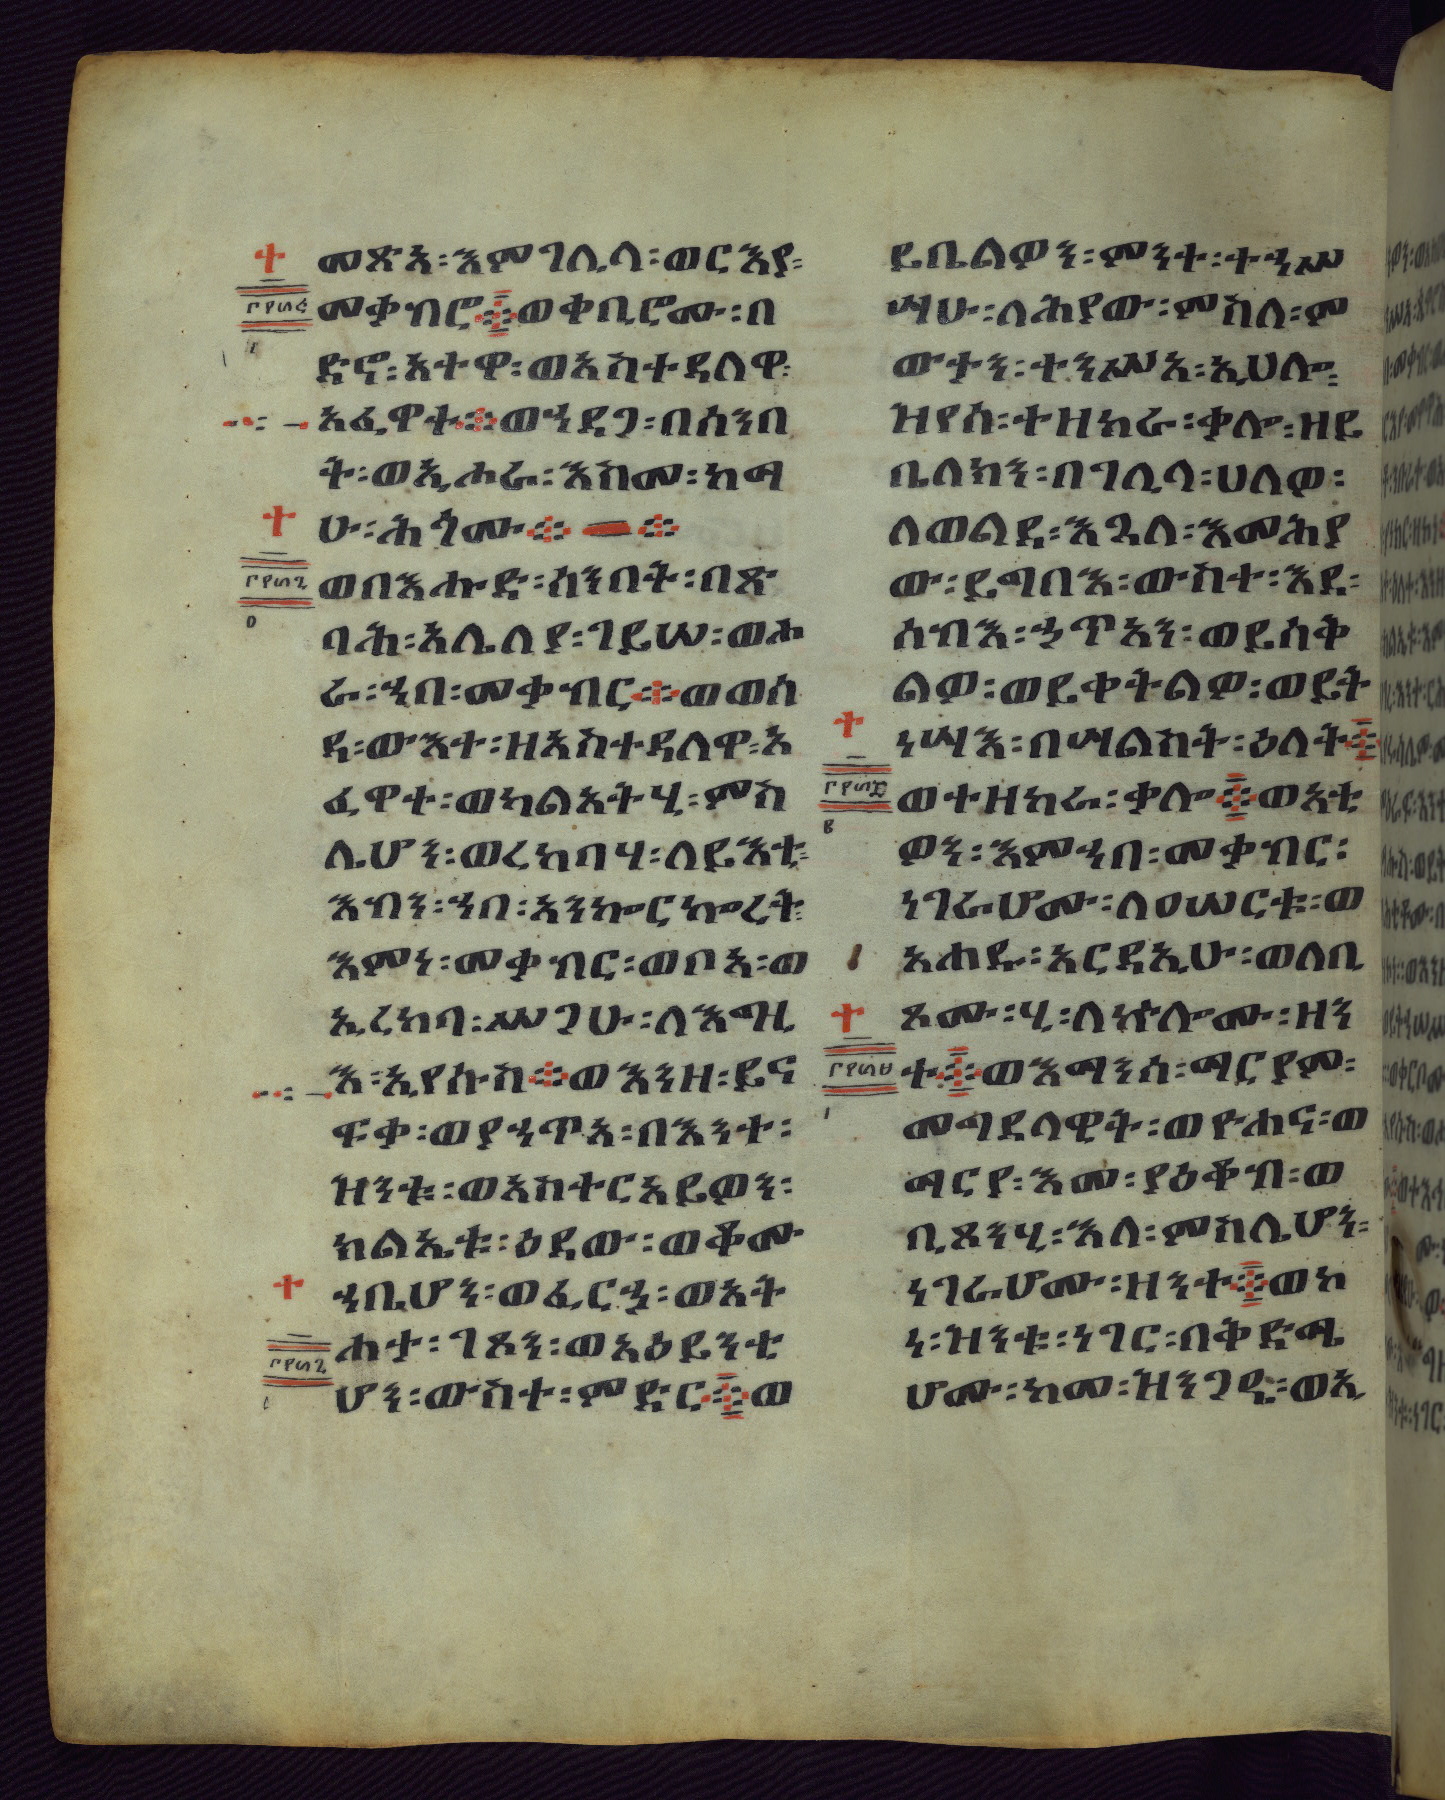 መጽአ፡እምገሊላ፡ወርእየ፡
መቃብሮ፨ወቀቢሮሙ፡በ
ድኖ፡አተዋ፡ወአስተዳለዋ፡
አፈዋተ፨ወኀደጋ፡በሰንበ
ት፡ወኢሖራ፡እስመ፡ከማ
ሁ፡ሕጎሙ፨ ፨
ወበእሑድ፡ሰንበት፡በጽ
ባሕ፡አሌለያ፡ገይሠ፡ወሖ
ራ፡ኀበ፡መቃብር፨ወወሰ
ዳ፡ውእተ፡ዘአስተዳለዋ፡አ
ፈዋተ፡ወካልአትሂ፡ምስ
ሌሆን፡ወረከባሃ፡ለይእቲ፡
እብን፡ኀበ፡አንኰርኰረት፡
እምነ፡መቃብር፡ወቦአ፡ወ
ኢረከባ፡ሥጋሁ፡ለእግዚ
እ፡ኢየሱስ፨ወእንዘ፡ይና
ፍቃ፡ወያኀጥአ፡በእንተ፡
ዝንቱ፡ወአስተርአይዎን፡
ክልኤቱ፡ዕደው፡ወቆሙ
ኀቤሆን፡ወፈርሃ፡ወአት
ሐታ፡ገጾን፡ወአዕይንቲ
ሆን፡ውስተ፡ምድር፨ወ
ይቤልዎን፡ምንተ፡ተኀሥ
ሣሁ፡ለሕያው፡ምስለ፡ም
ውታን፡ተንሥአ፡ኢሀሎ፡
ዝየሰ፡ተዘከራ፡ቃሎ፡ዘይ
ቤለክን፡በገሊላ፡ሀለዎ፡
ለወልደ፡እጓለ፡እመሕያ
ው፡ይግባእ፡ውስተ፡እደ፡
ሰብእ፡ኃጥአን፡ወይሰቅ
ልዎ፡ወይቀትልዎ፡ወይት
ነሣእ፡በሣልስት፡ዕለት፨
ወተዘከራ፡ቃሎ፨ወአቲ
ዎን፡እምኀበ፡መቃብር፡
ነገራሆሙ፡ለዐሠርቱ፡ወ
አሐዱ፡አርዳኢሁ፡ወለቢ
ጾሙ፡ሂ፡ለኵሎሙ፡ዘን
ተ፨ወእማንሰ፡ማርያም፡
መግደላዊት፡ወዮሐና፡ወ
ማርያ፡እመ፡ያዕቆብ፡ወ
ቢጾንሂ፡እለ፡ምስሌሆን፡
ነገራሆሙ፡ዘንተ፨ወኮ
ነ፡ዝንቱ፡ነገር፡በቅድሜ
ሆሙ፡ከመ፡ዝንጋዔ፡ወኢ